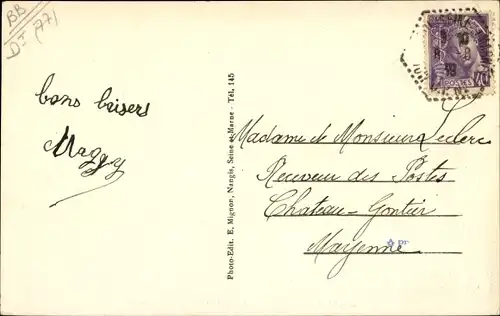 BB
DT (77)
bons baisers
Maggy
Photo-Edit. E. Mignon, Nangis, Seine et Marne - Tél. 145
POSTES
Madame de Monsieur Leclerc
Receveur des Postes
Chateau-Gontier
Mayenne